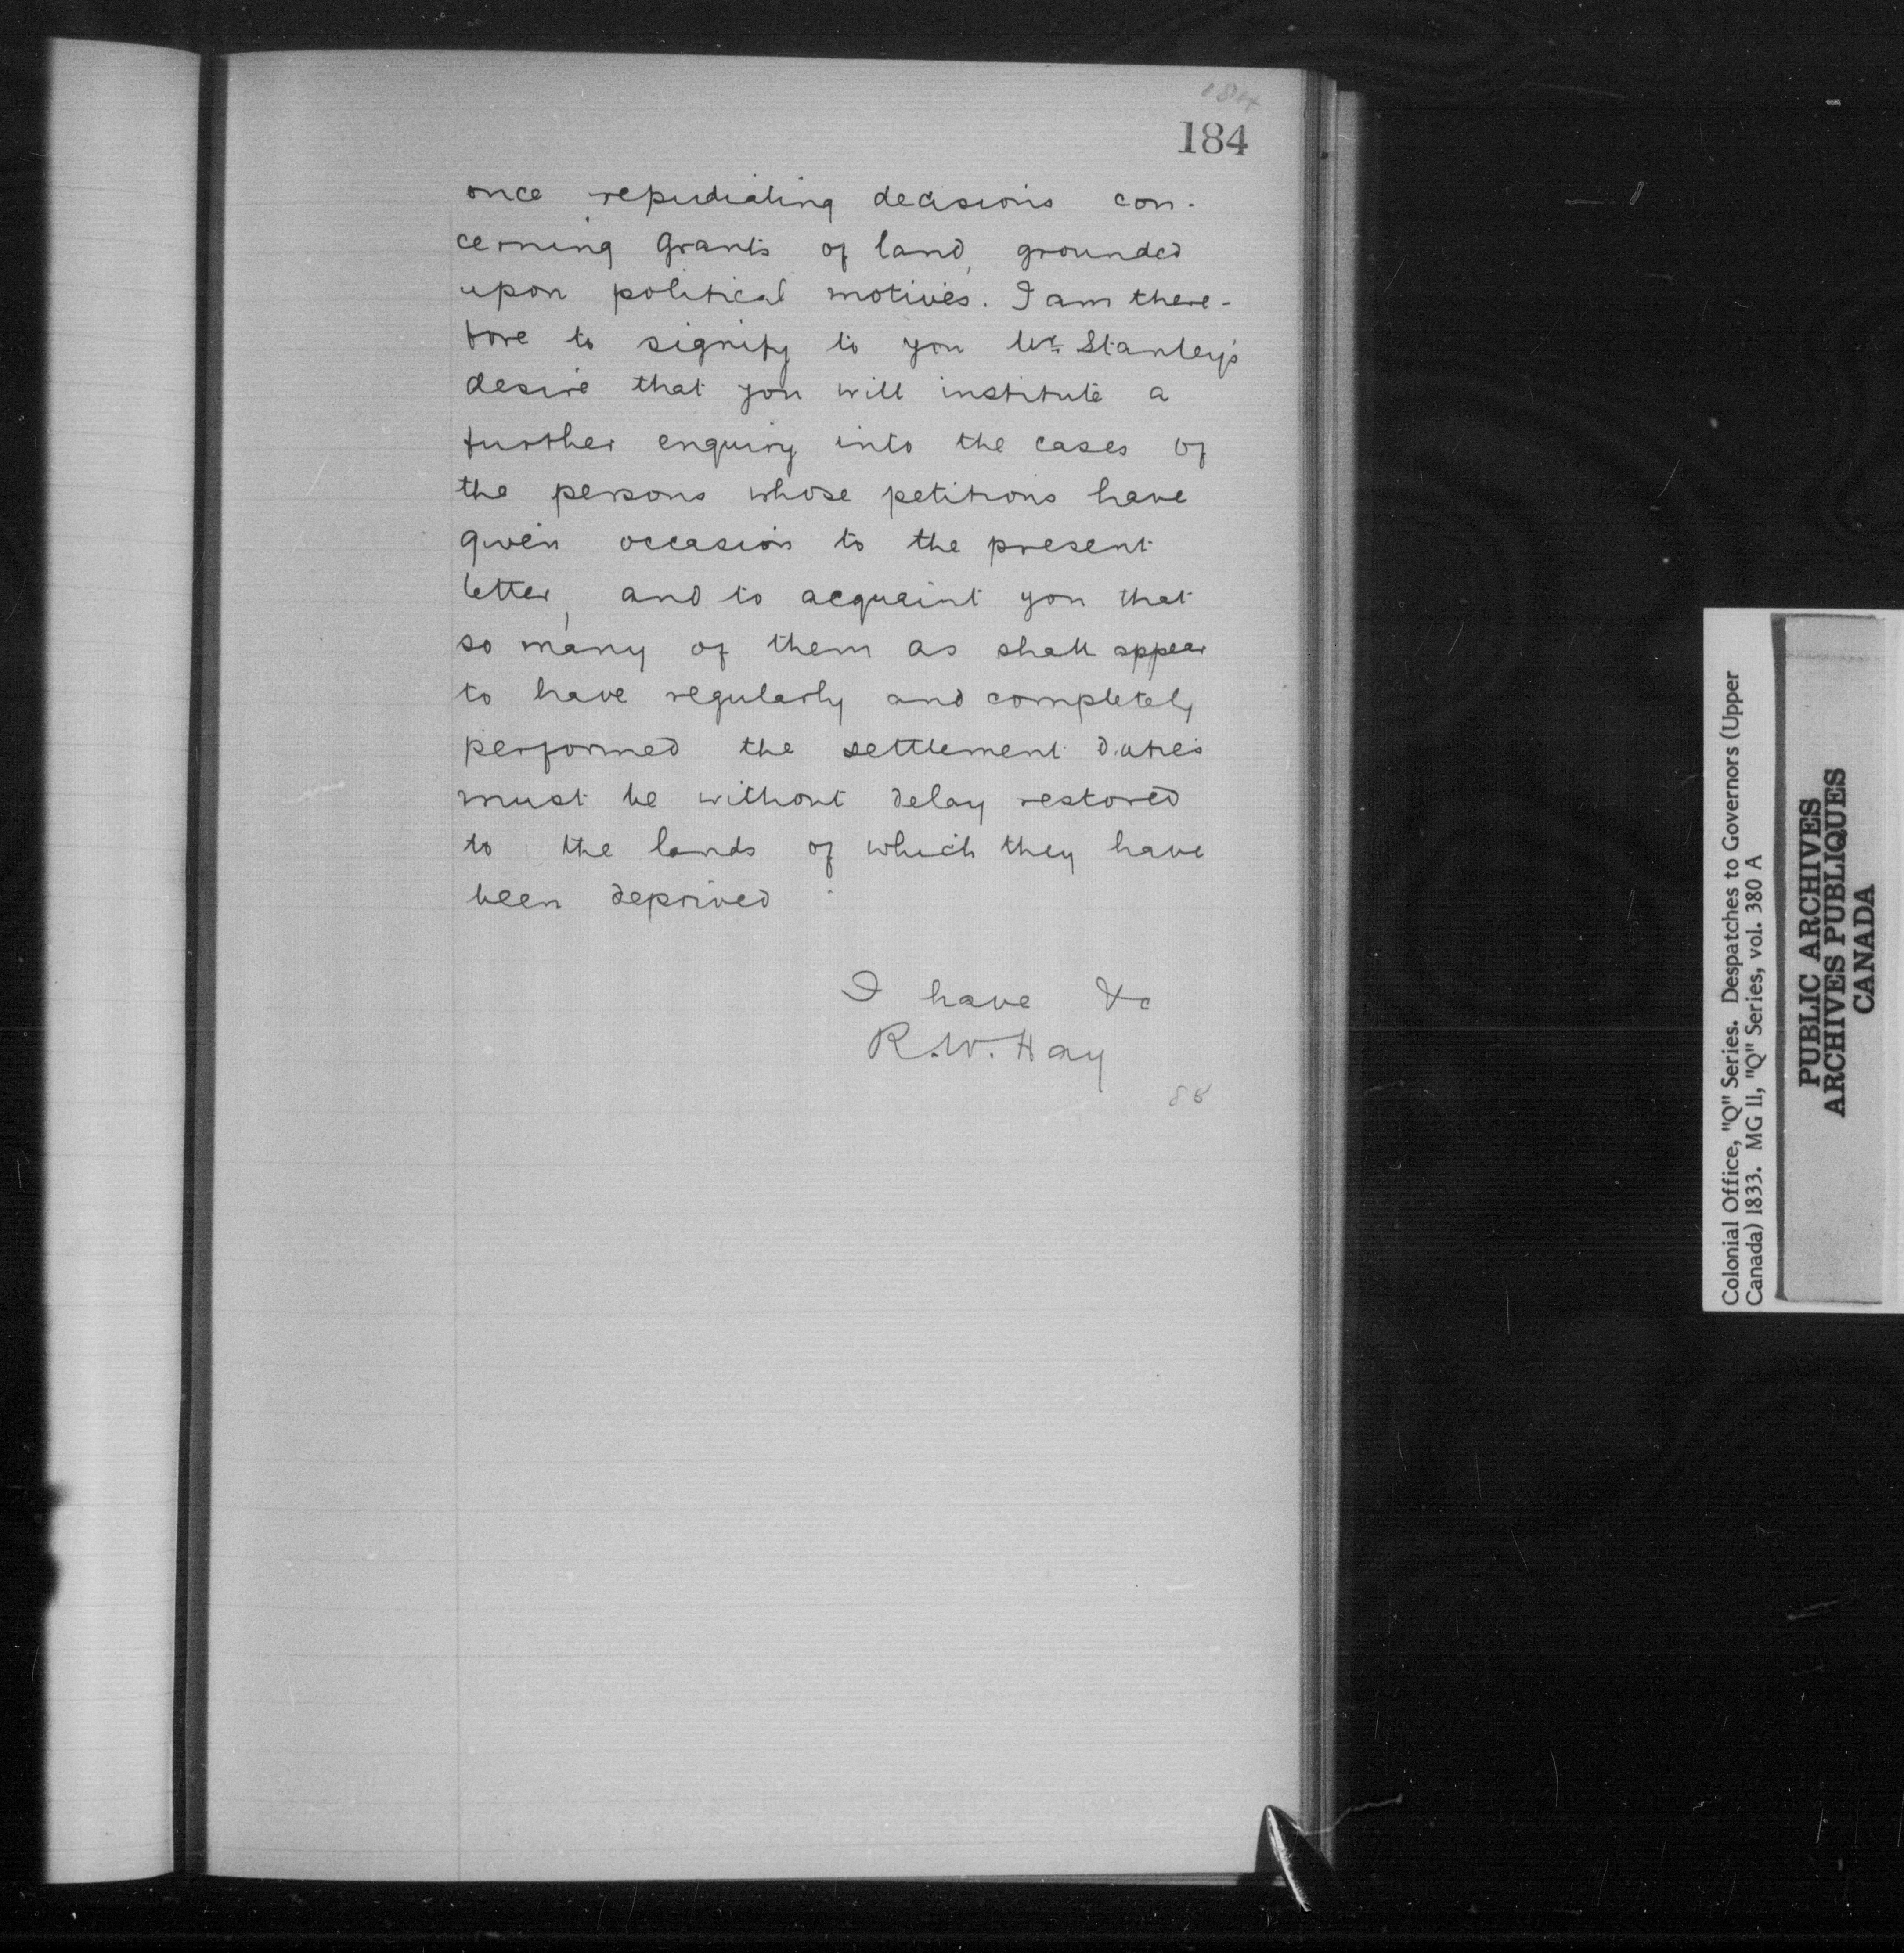 184
184
once repudiating decisions con-
cerning grants of land, grounded
upon political motives. I am there-
fore to signify to you Mr. Stanley's
desire that you will institute a
further enquiry into the cases of
the persons whose petitions have
given occasion to the present
letter, and to acquaint you that
so many of them as shall appear
to have regularly and completely
performed the settlement duties
must be without delay restored
to the lands of which they have
been deprived.
I have &c
R.W. Hay
85
Colonial Office, "Q" Series. Despatches to Governors (Upper
Canada) 1833. MG 11, "Q" Series, vol. 380 A
PUBLIC ARCHIVES
ARCHIVES PUBLIQUES
CANADA